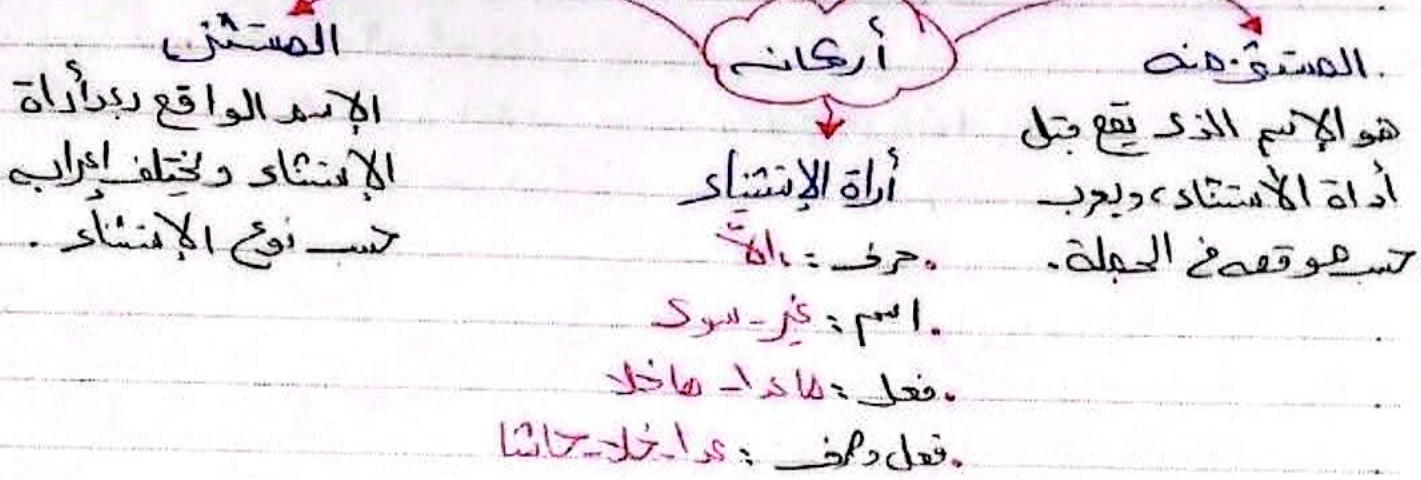 أركانه
المستثنى منه
هو الإسم الذي يقع قبل
أداة الأستثناء، ويعرب
حسب موقعه في الجملة.
أداة الإستثناء
. حرف : إلّا
. اسم : غير - سوى
. فعل : ما عدا - ما خلا
. فعل وحرف : عدا - خلا - حاشا
المستثنى
الإسم الواقع بعد أداة
الإستثناء ويختلف إعرابه
حسب نوع الإستثناء .